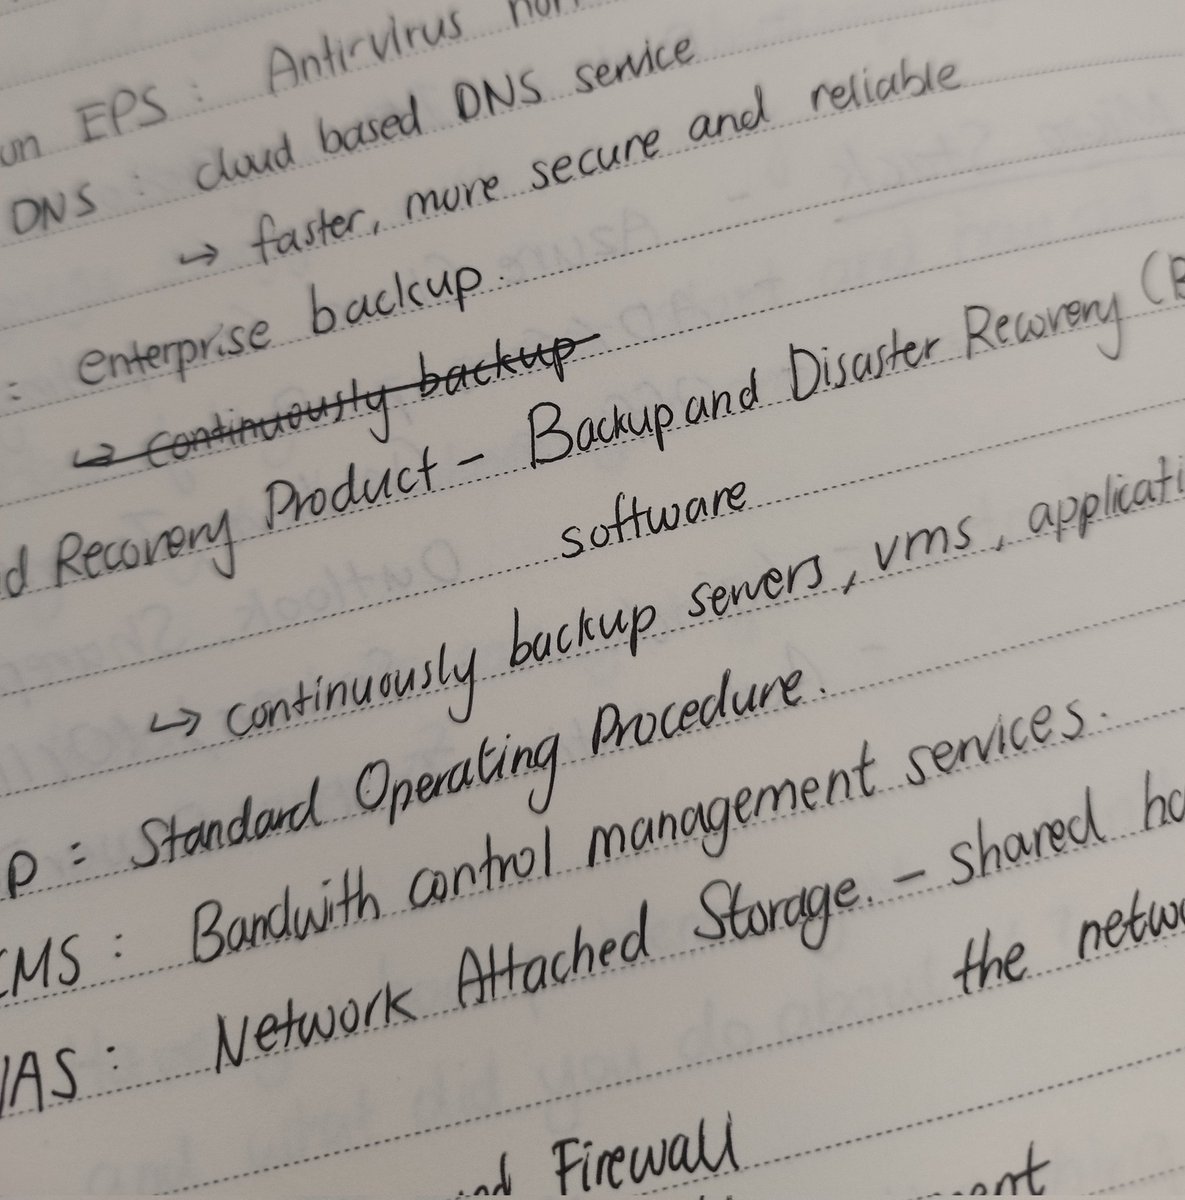 un EPS : Antirvirus
DNS : cloud based DNS service
↳ faster, more secure and reliable
: enterprise backup.
↳ continuously backup
d Recovery Product - Backup and Disaster Recovery (B
software
↳ continuously backup servers, vms, applicati
P : Standard Operating Procedure.
CMS : Bandwith control management services.
NAS : Network Attached Storage. - shared
the netwo
nd Firewall